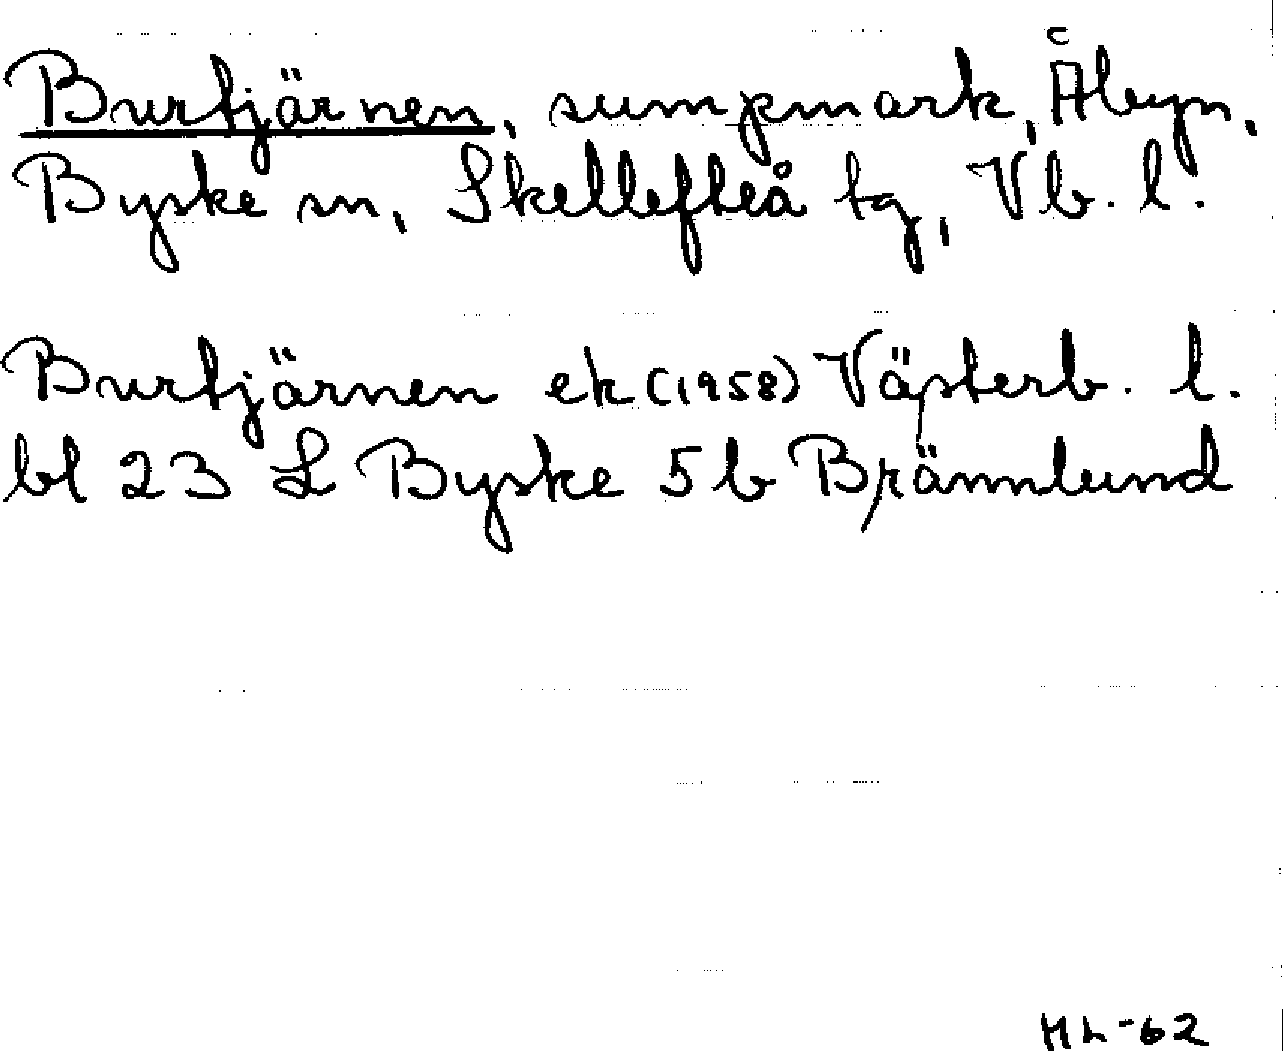 Burtjärnen, sumpmark, Åbyn,
Byske sn, Skellefteå tg, Vb. l.
Burtjärnen ek (1958) Västerb. l.
bl 23 L Byske 5 b Brännlund
HL-62